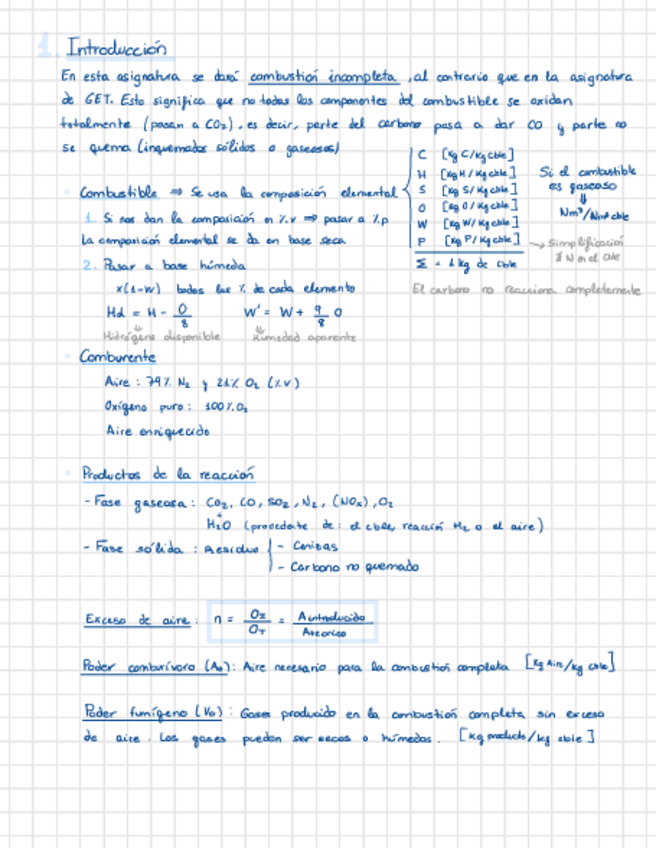 1. Introducción
En esta asignatura se dará combustión incompleta, al contrario que en la asignatura
de GET. Esto significa que no todos los componentes del combustible se oxidan
totalmente (pasan a CO2), es decir, parte del carbono pasa a dar CO y parte no
se quema (inquemados sólidos o gaseosos)
Combustible ⇒ Se usa la composición elemental
C [kg C/kg cble]
H [kg H/kg cble]
S [kg S/kg cble]
O [kg O/kg cble]
W [kg W/kg cble]
P [kg P/kg cble]
Σ = 1 kg de cble
Si el combustible
es gaseoso
⇓
Nm³/Nm³ cble
→ Simplificación
∄ N en el cble
El carbono no reacciona completamente
1. Si nos dan la composición en %v ⇒ pasar a %p
La composición elemental se da en base seca
2. Pasar a base húmeda
x(1-w) todos los % de cada elemento
Hd = H - O/8 W' = W + 9/8 O
Hidrógeno disponible Humedad aparente
Comburente
Aire: 79% N2 y 21% O2 (%v)
Oxígeno puro: 100% O2
Aire enriquecido
Productos de la reacción
- Fase gaseosa: CO2, CO, SO2, N2, (NOx), O2
+
H2O (procedente de: el cble, reacción H2 o el aire)
- Fase sólida: Residuo
- Cenizas
- Carbono no quemado
Exceso de aire: n = OI/OT = A introducido/A teórico
Poder comburívoro (Ao): Aire necesario para la combustión completa [kg Aire/kg cble]
Poder fumígeno (Vo): Gases producido en la combustión completa sin exceso
de aire. Los gases pueden ser secos o húmedos. [kg products/kg cble]